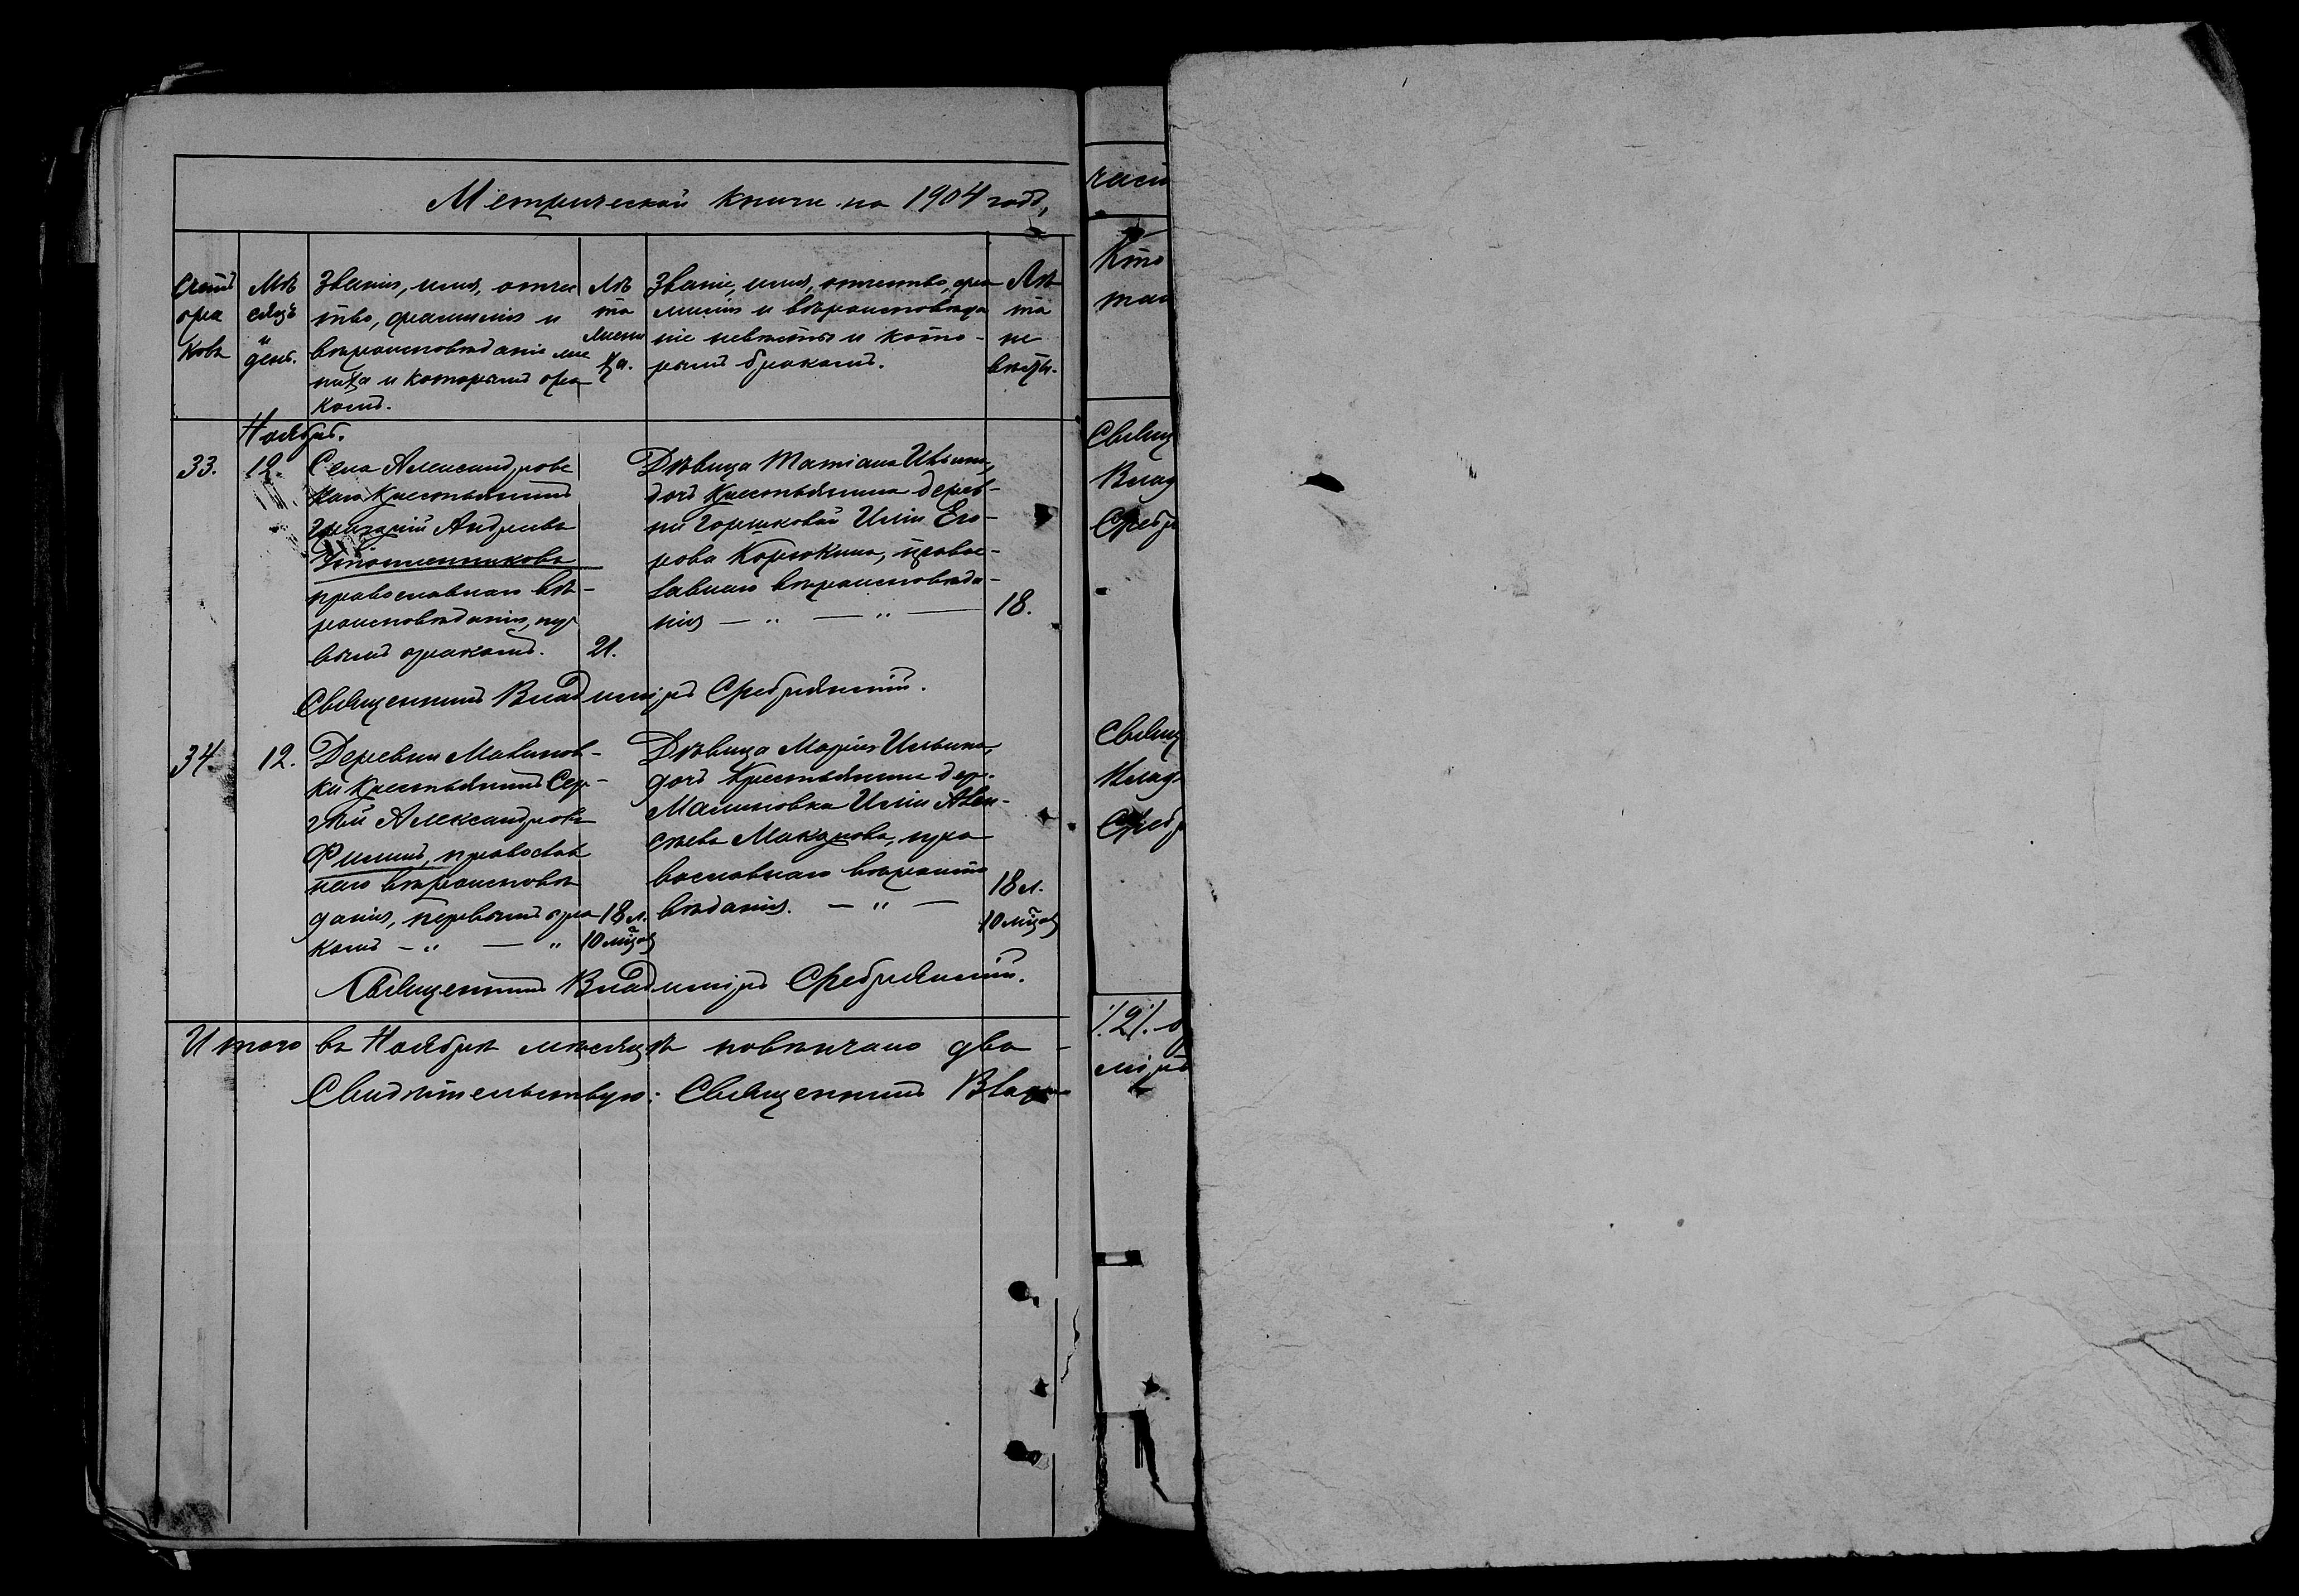 Метрической книги на 1904 годъ,
Счетъ
бра
ковъ
Мѣ
сяцъ
и
день.
Званіе, имя, отчес
тво, фамилія и
вѣроисповѣданіе же
ниха и которымъ бра
комъ.
Лѣ
та
жени
ха.
Званіе, имя, отчество, фа
милія и вѣроисповѣда
ніе невѣсты и кото-
рымъ бракомъ.
Лѣ
та
не
вѣсты.
Ноябрь.
33.
12.
Села Александровс
каго крестьянинъ
Григорій Андреевъ
православнаго вѣ-
роисповѣданія, пер
вымъ бракомъ.
21.
Дѣвица Татіана Ильина,
дочь крестьянина дерев-
ни Горшковой Иліи Его-
рова Корюкина, правос-
лавнаго вѣроисповѣда-
нія — „ — „ —
18.
Священникъ Владиміръ Сребрянскій.
34.
12.
Деревни Малинов-
ки крестьянинъ Сер-
гѣй Александровъ
Филинъ, православ
наго вѣроисповѣ
данія, первымъ бра
комъ — „ — „
18 л.
10 мѣцов
Дѣвица Марія Ильина,
дочь крестьянина дер.
Малиновка Иліи Алек-
сѣева Макарова, пра
вославнаго вѣроиспо
вѣданія. — „ —
18 л.
10 мѣцов
Священникъ Владиміръ Сребрянскій.
Итого въ Ноябрѣ мѣсяцѣ повѣнчано два
Свидѣтельствую: Священникъ Влади
част
Кто
таи
Свящ
Влад
Сребр
Свящ
Влад
Сребр
/.2/. б
міръ